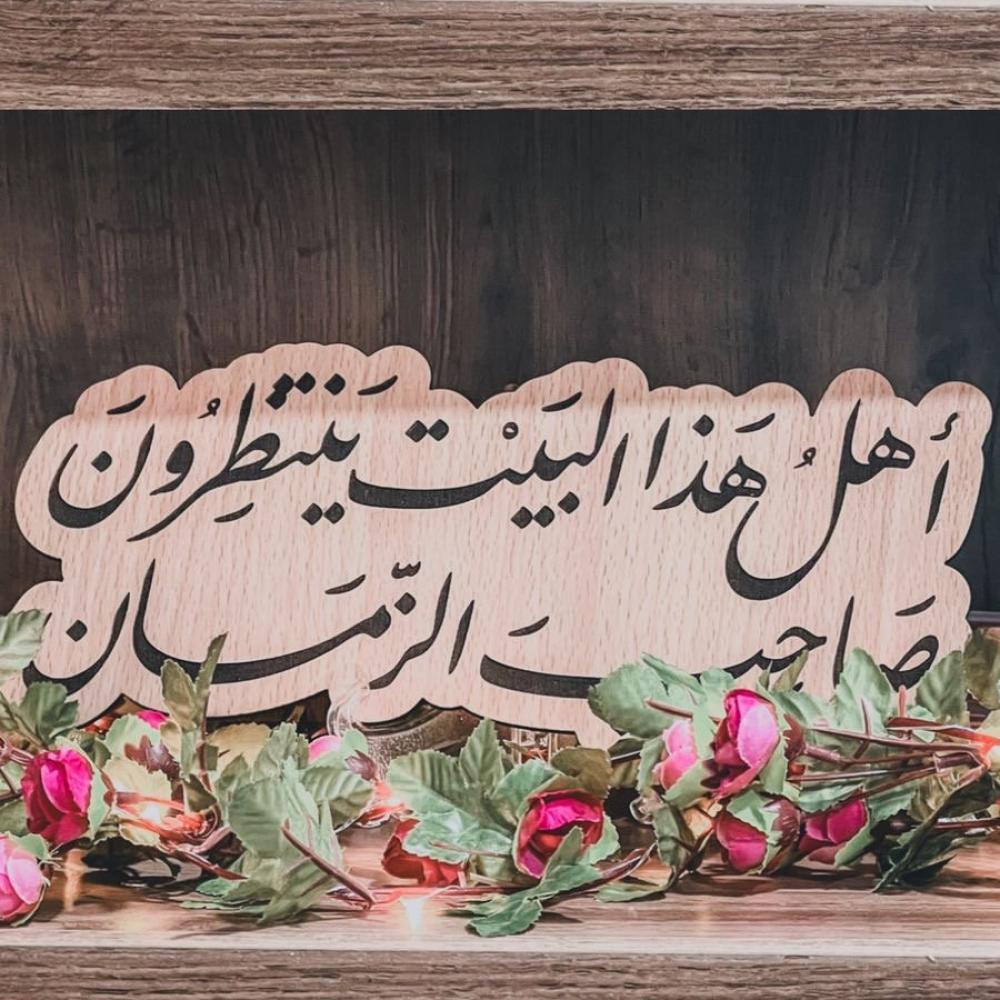 أهلُ هَذا البَيْت يَنتَظِرُونَ
صَاحِبَ الزَّمَان